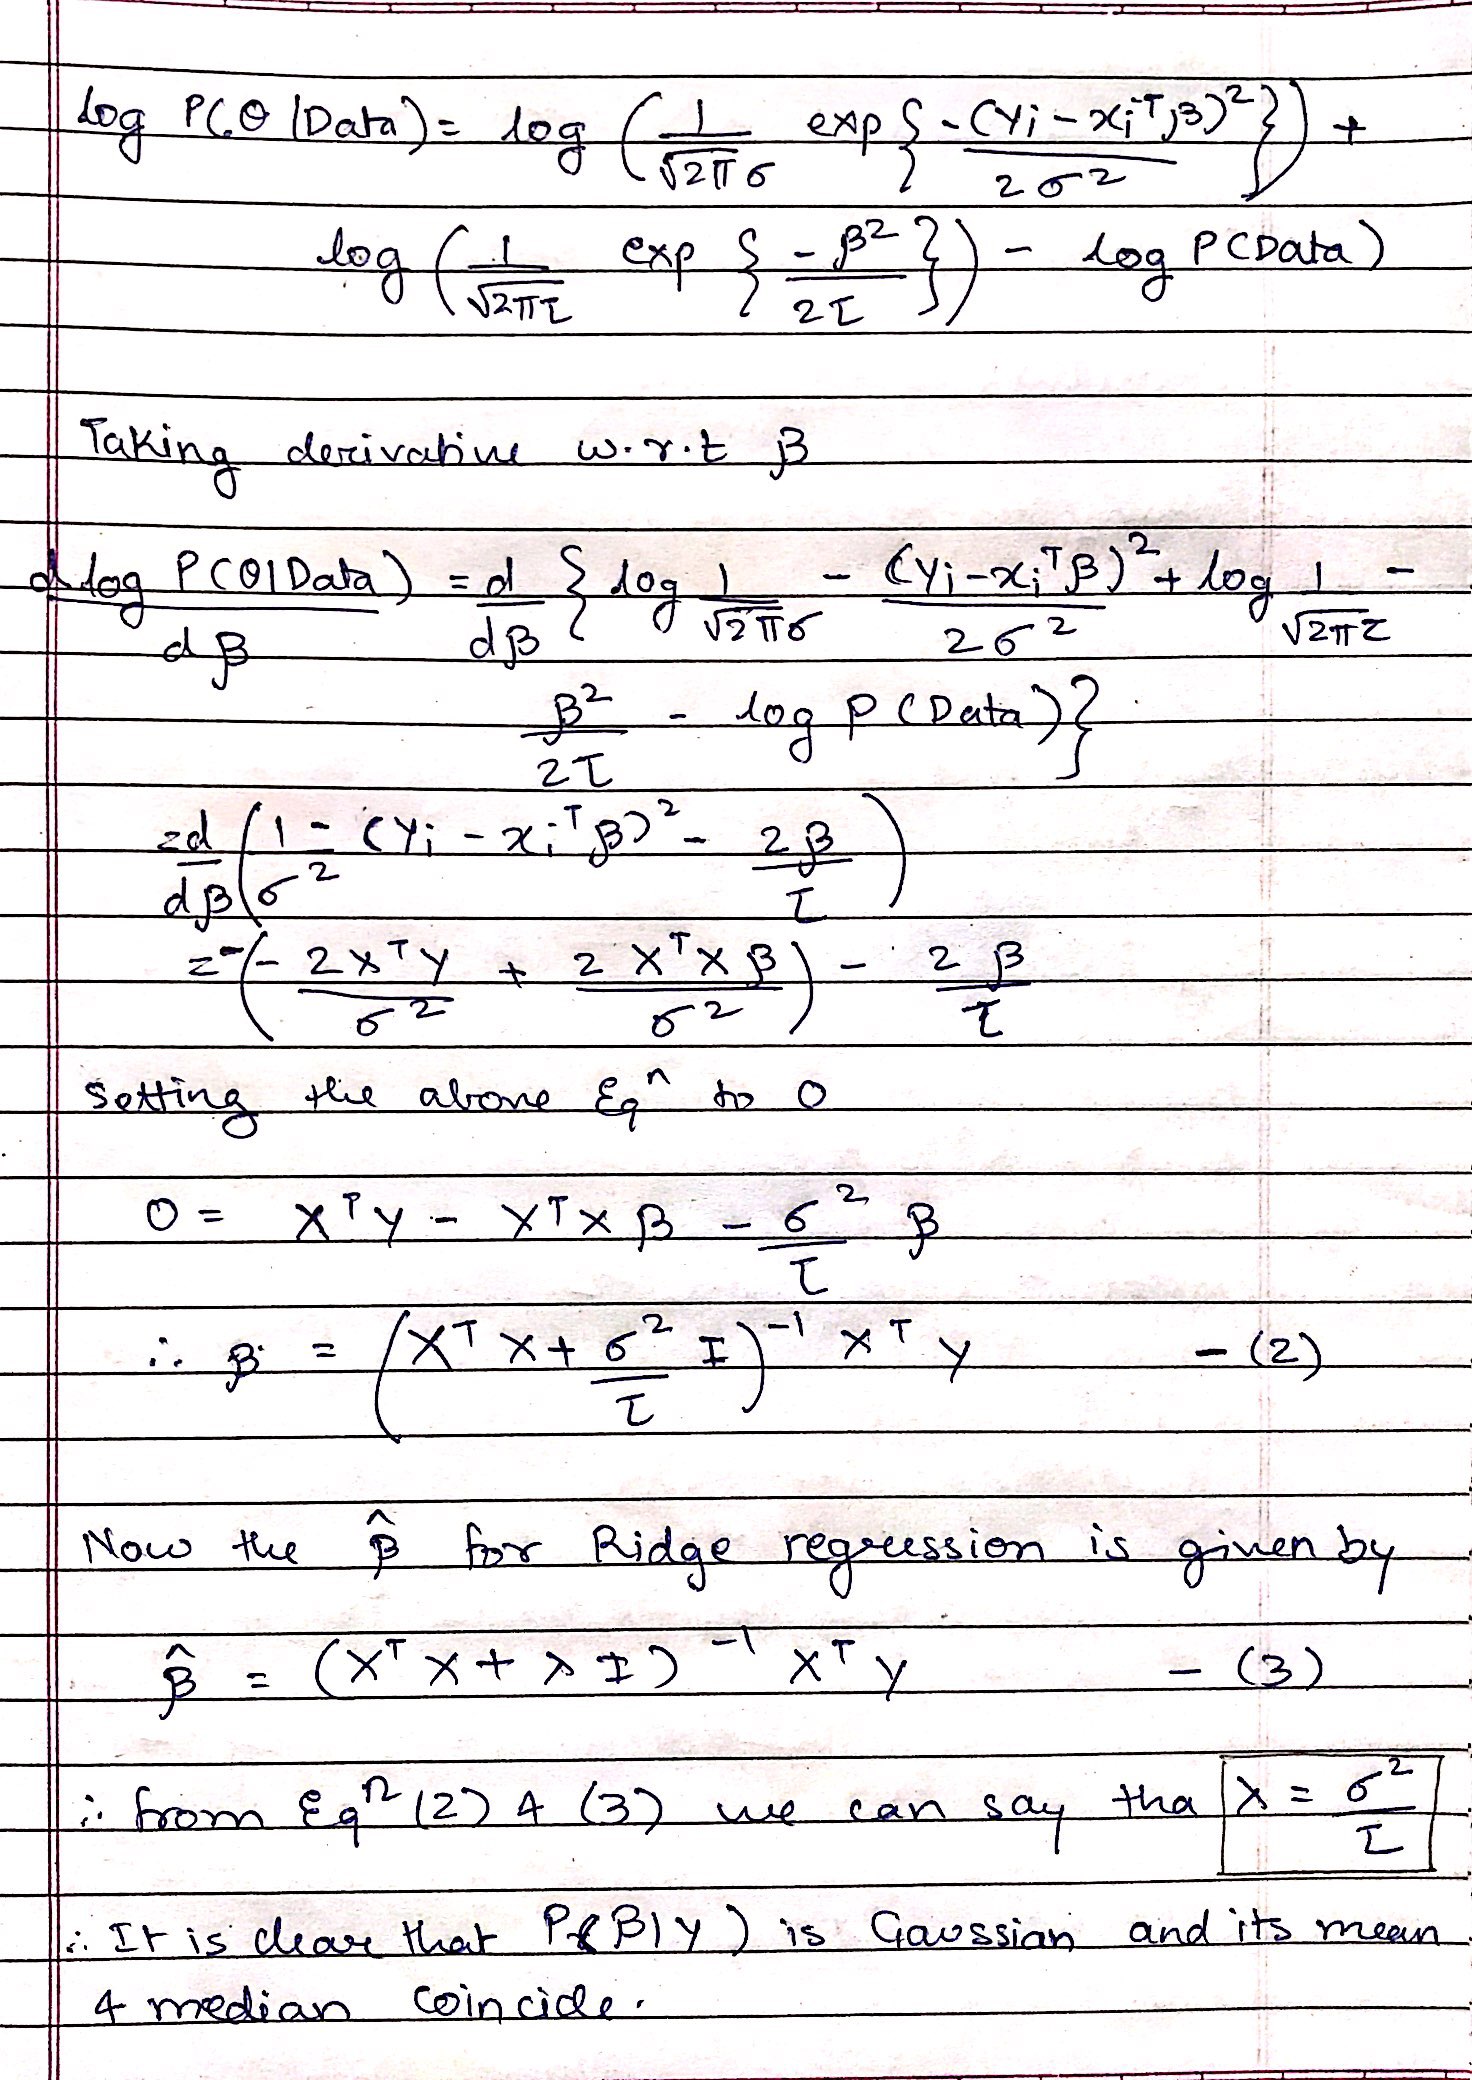 log P(θ|Data) = log (1/√2πσ exp{-(yi - xiᵀβ)²/2σ²}) +
log (1/√2πτ exp{-β²/2τ}) - log P(Data)
Taking derivative w.r.t β
d log P(θ|Data)/dβ = d/dβ { log 1/√2πσ - (yi - xiᵀβ)²/2σ² + log 1/√2πτ -
β²/2τ - log P(Data)}
= d/dβ (1/σ² - (yi - xiᵀβ)² - 2β/τ)
= -(-2XᵀY/σ² + 2XᵀXβ/σ²) - 2β/τ
Setting the above Eqⁿ to 0
0 = XᵀY - XᵀXβ - σ²/τ β
∴ β = (XᵀX + σ²/τ I)⁻¹ XᵀY - (2)
Now the β̂ for Ridge regression is given by
β̂ = (XᵀX + λI)⁻¹ XᵀY - (3)
∴ from Eqⁿ (2) & (3) we can say tha λ = σ²/τ
∴ It is clear that P(β|y) is Gaussian and its mean
& median coincide.